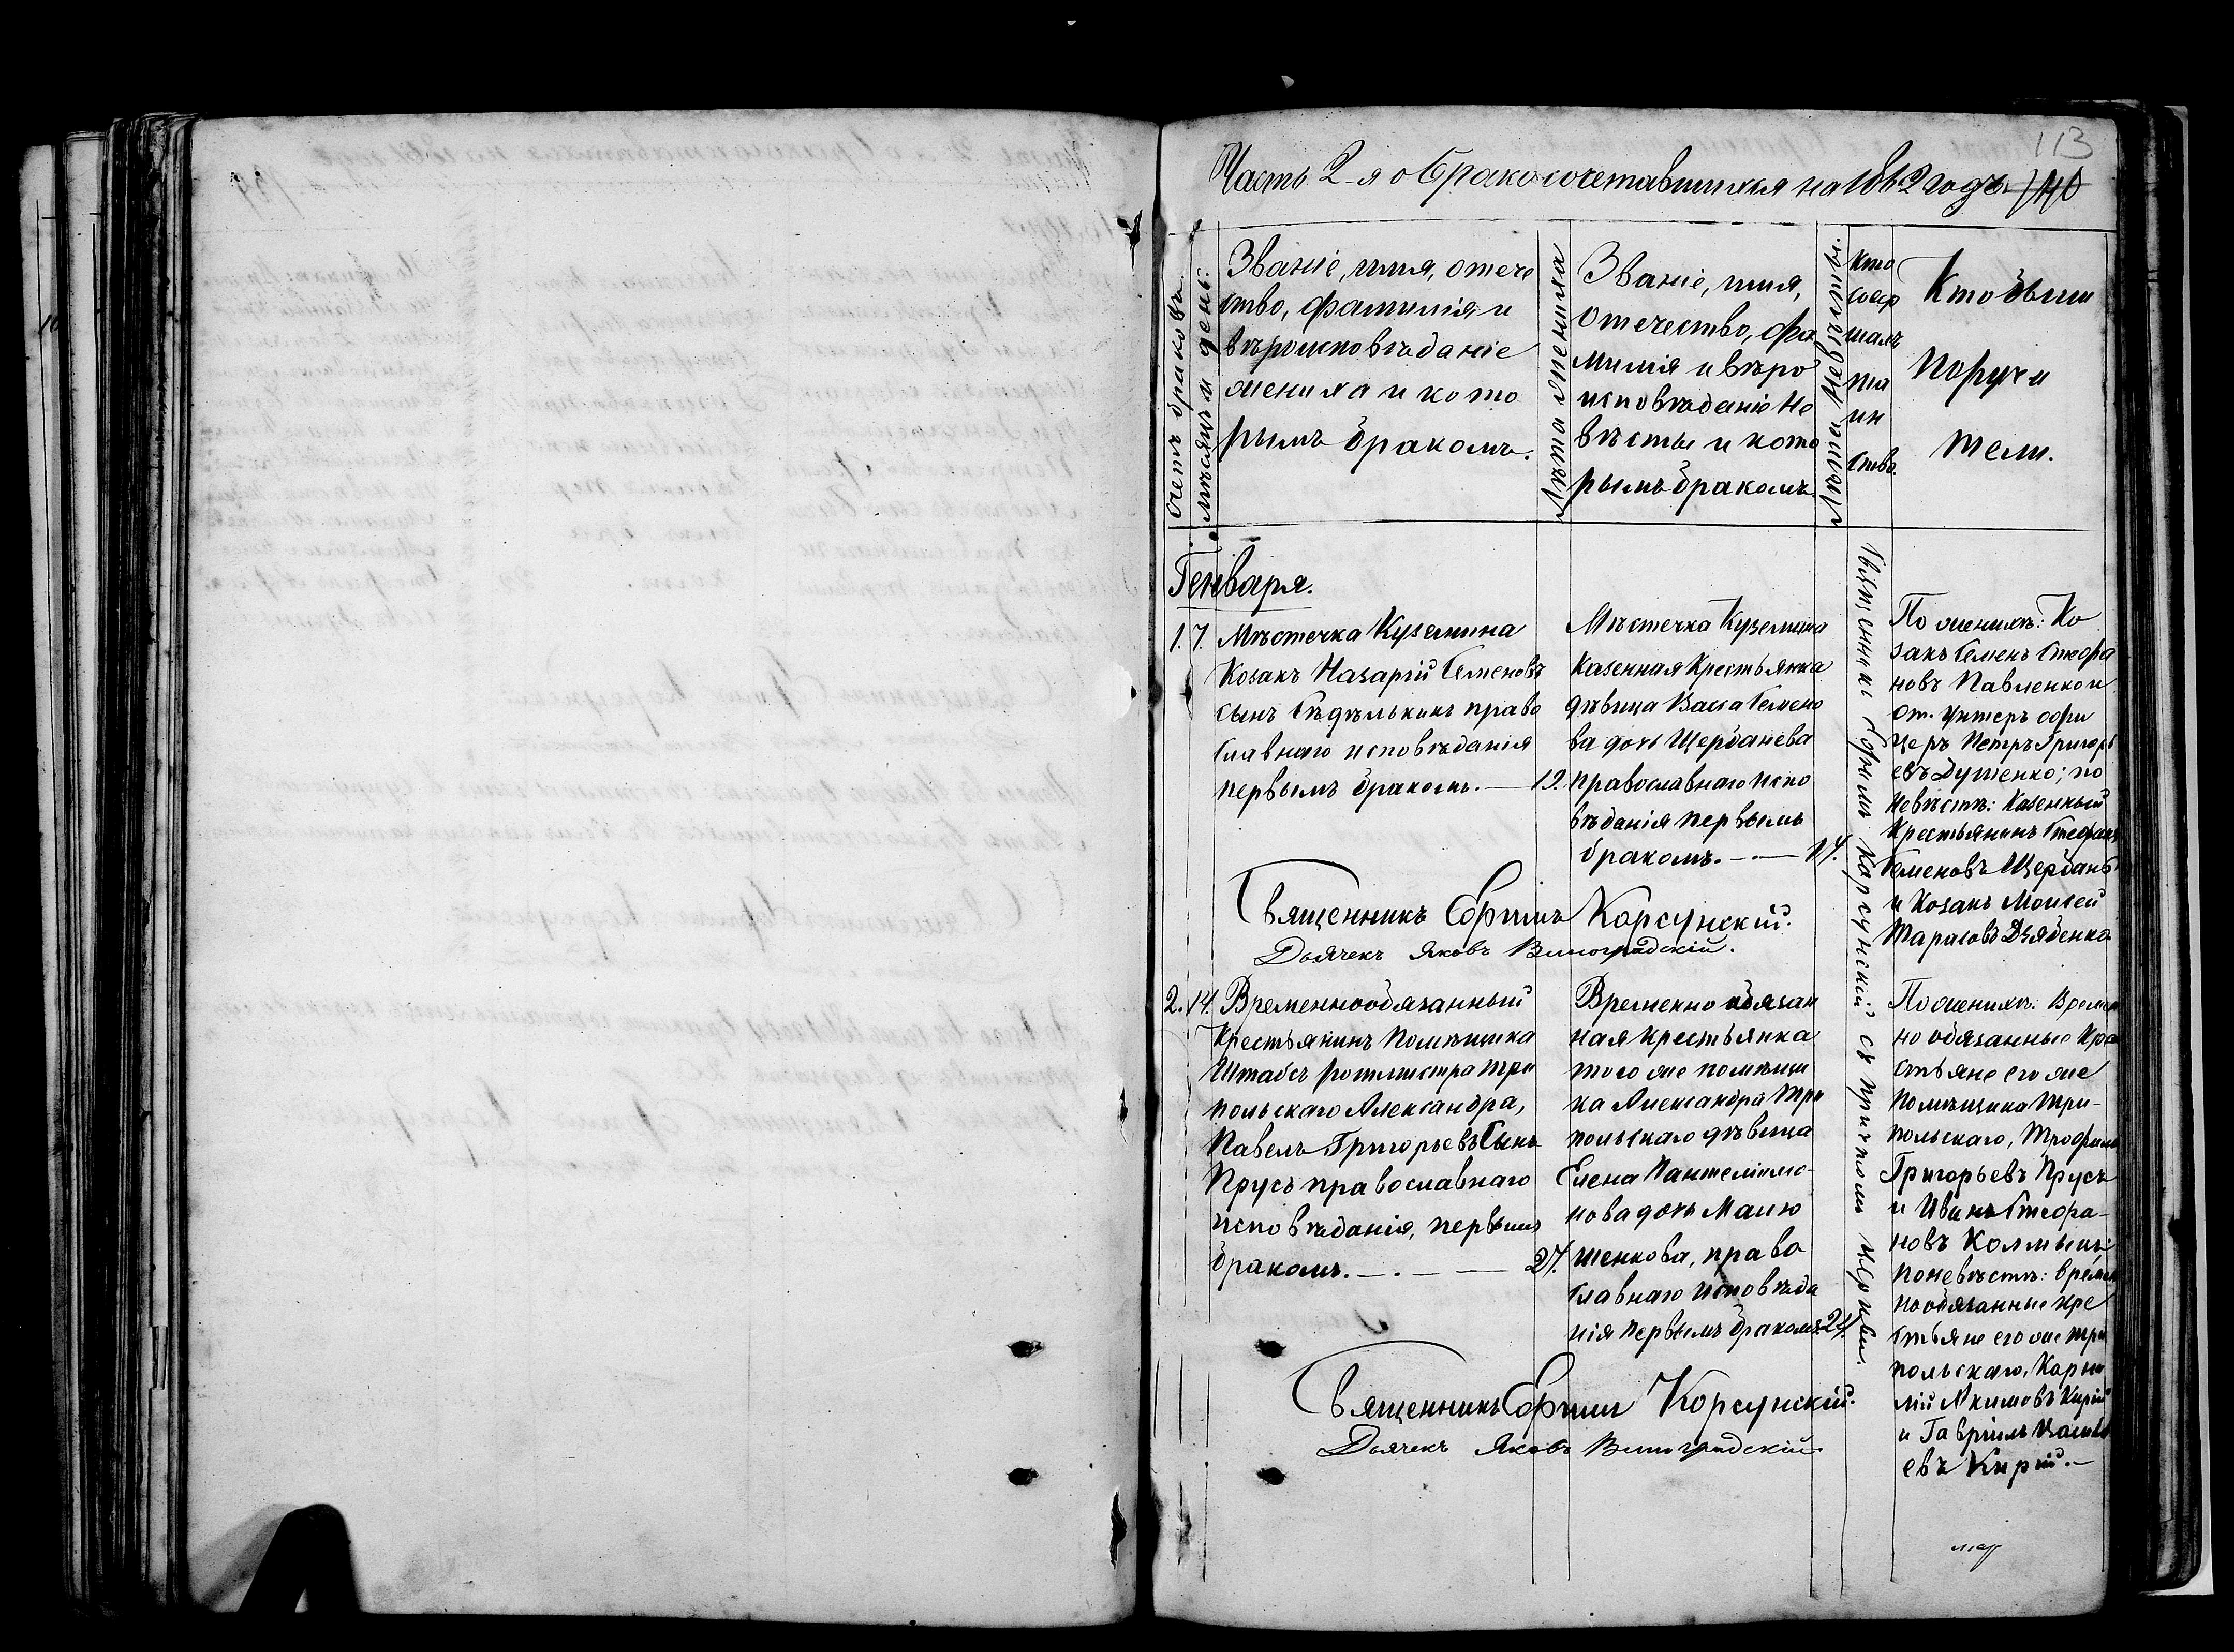 113
Часть 2-я о бракосочетавшихся на 1862 годъ. 140
Счетъ браковъ.
Мѣсяцъ и день.
Званіе, имя, отече
ство, фамилія и
вѣроисповѣданіе
жениха и кото
рымъ бракомъ.
Лѣта жениха
Званіе, имя,
отечество, фа
милія и вѣро
исповѣданіе не
вѣсты и кото
рымъ бракомъ
Лѣта невѣсты.
Кто
совер
шалъ
таи
ин
ство.
Кто были
поручи
тели.
Генваря.
1. 7. Мѣстечка Куземина
Козакъ Назарій Семеновъ
сынъ Сѣдѣлькинъ право
славнаго исповѣданія
первымъ бракомъ. — 19.
Мѣстечка Куземина
Казенная Крестьянка
дѣвица Васса Семено
ва дочь Щербанева
православнаго испо
вѣданія первымъ
бракомъ. — 17.
Священникъ Ефимъ Корсунскій съ причтомъ церкви.
По женихѣ: Ко
закъ Семенъ Стефа
новъ Павленко и
от. Унтеръ офи
церъ Петръ Григорь
евъ Дутенко; по
невѣстѣ: Казенный
Крестьянинъ Стефанъ
Семеновъ Щербань
и Козакъ Моисей
Тарасовъ Дзябенко
Священникъ Ефимъ Корсунскій.
Дьячекъ Яковъ Виноградскій.
2. 14. Временнообязанный
Крестьянинъ Помѣщика
Штабсъ ротмистра Три
польскаго Александра,
Павелъ Григорьевъ Сынъ
Прусъ православнаго
исповѣданія, первымъ
бракомъ. — . — — 27.
Временно обязан
ная крестьянка
того же помѣщи
ка Александра Три
польскаго дѣвица
Елена Пантелеимо
нова дочь Малю
шенкова, право
славнаго исповѣда
нія первымъ бракомъ. 24.
По женихѣ: Времен
но обязанные Кре
стьяне его же
помѣщика Три-
польскаго, Трофимъ
Григорьевъ Прусъ
и Иванъ Стефа-
новъ Колмыкъ;
по невѣстѣ: времен
нообязанные кре
стьяне его же Три
польскаго, Карни
лій Акимовъ Кирій
и Гавріилъ
евъ Кирій. —
Священникъ Ефимъ Корсунскій.
Дьячекъ Яковъ Виноградскій